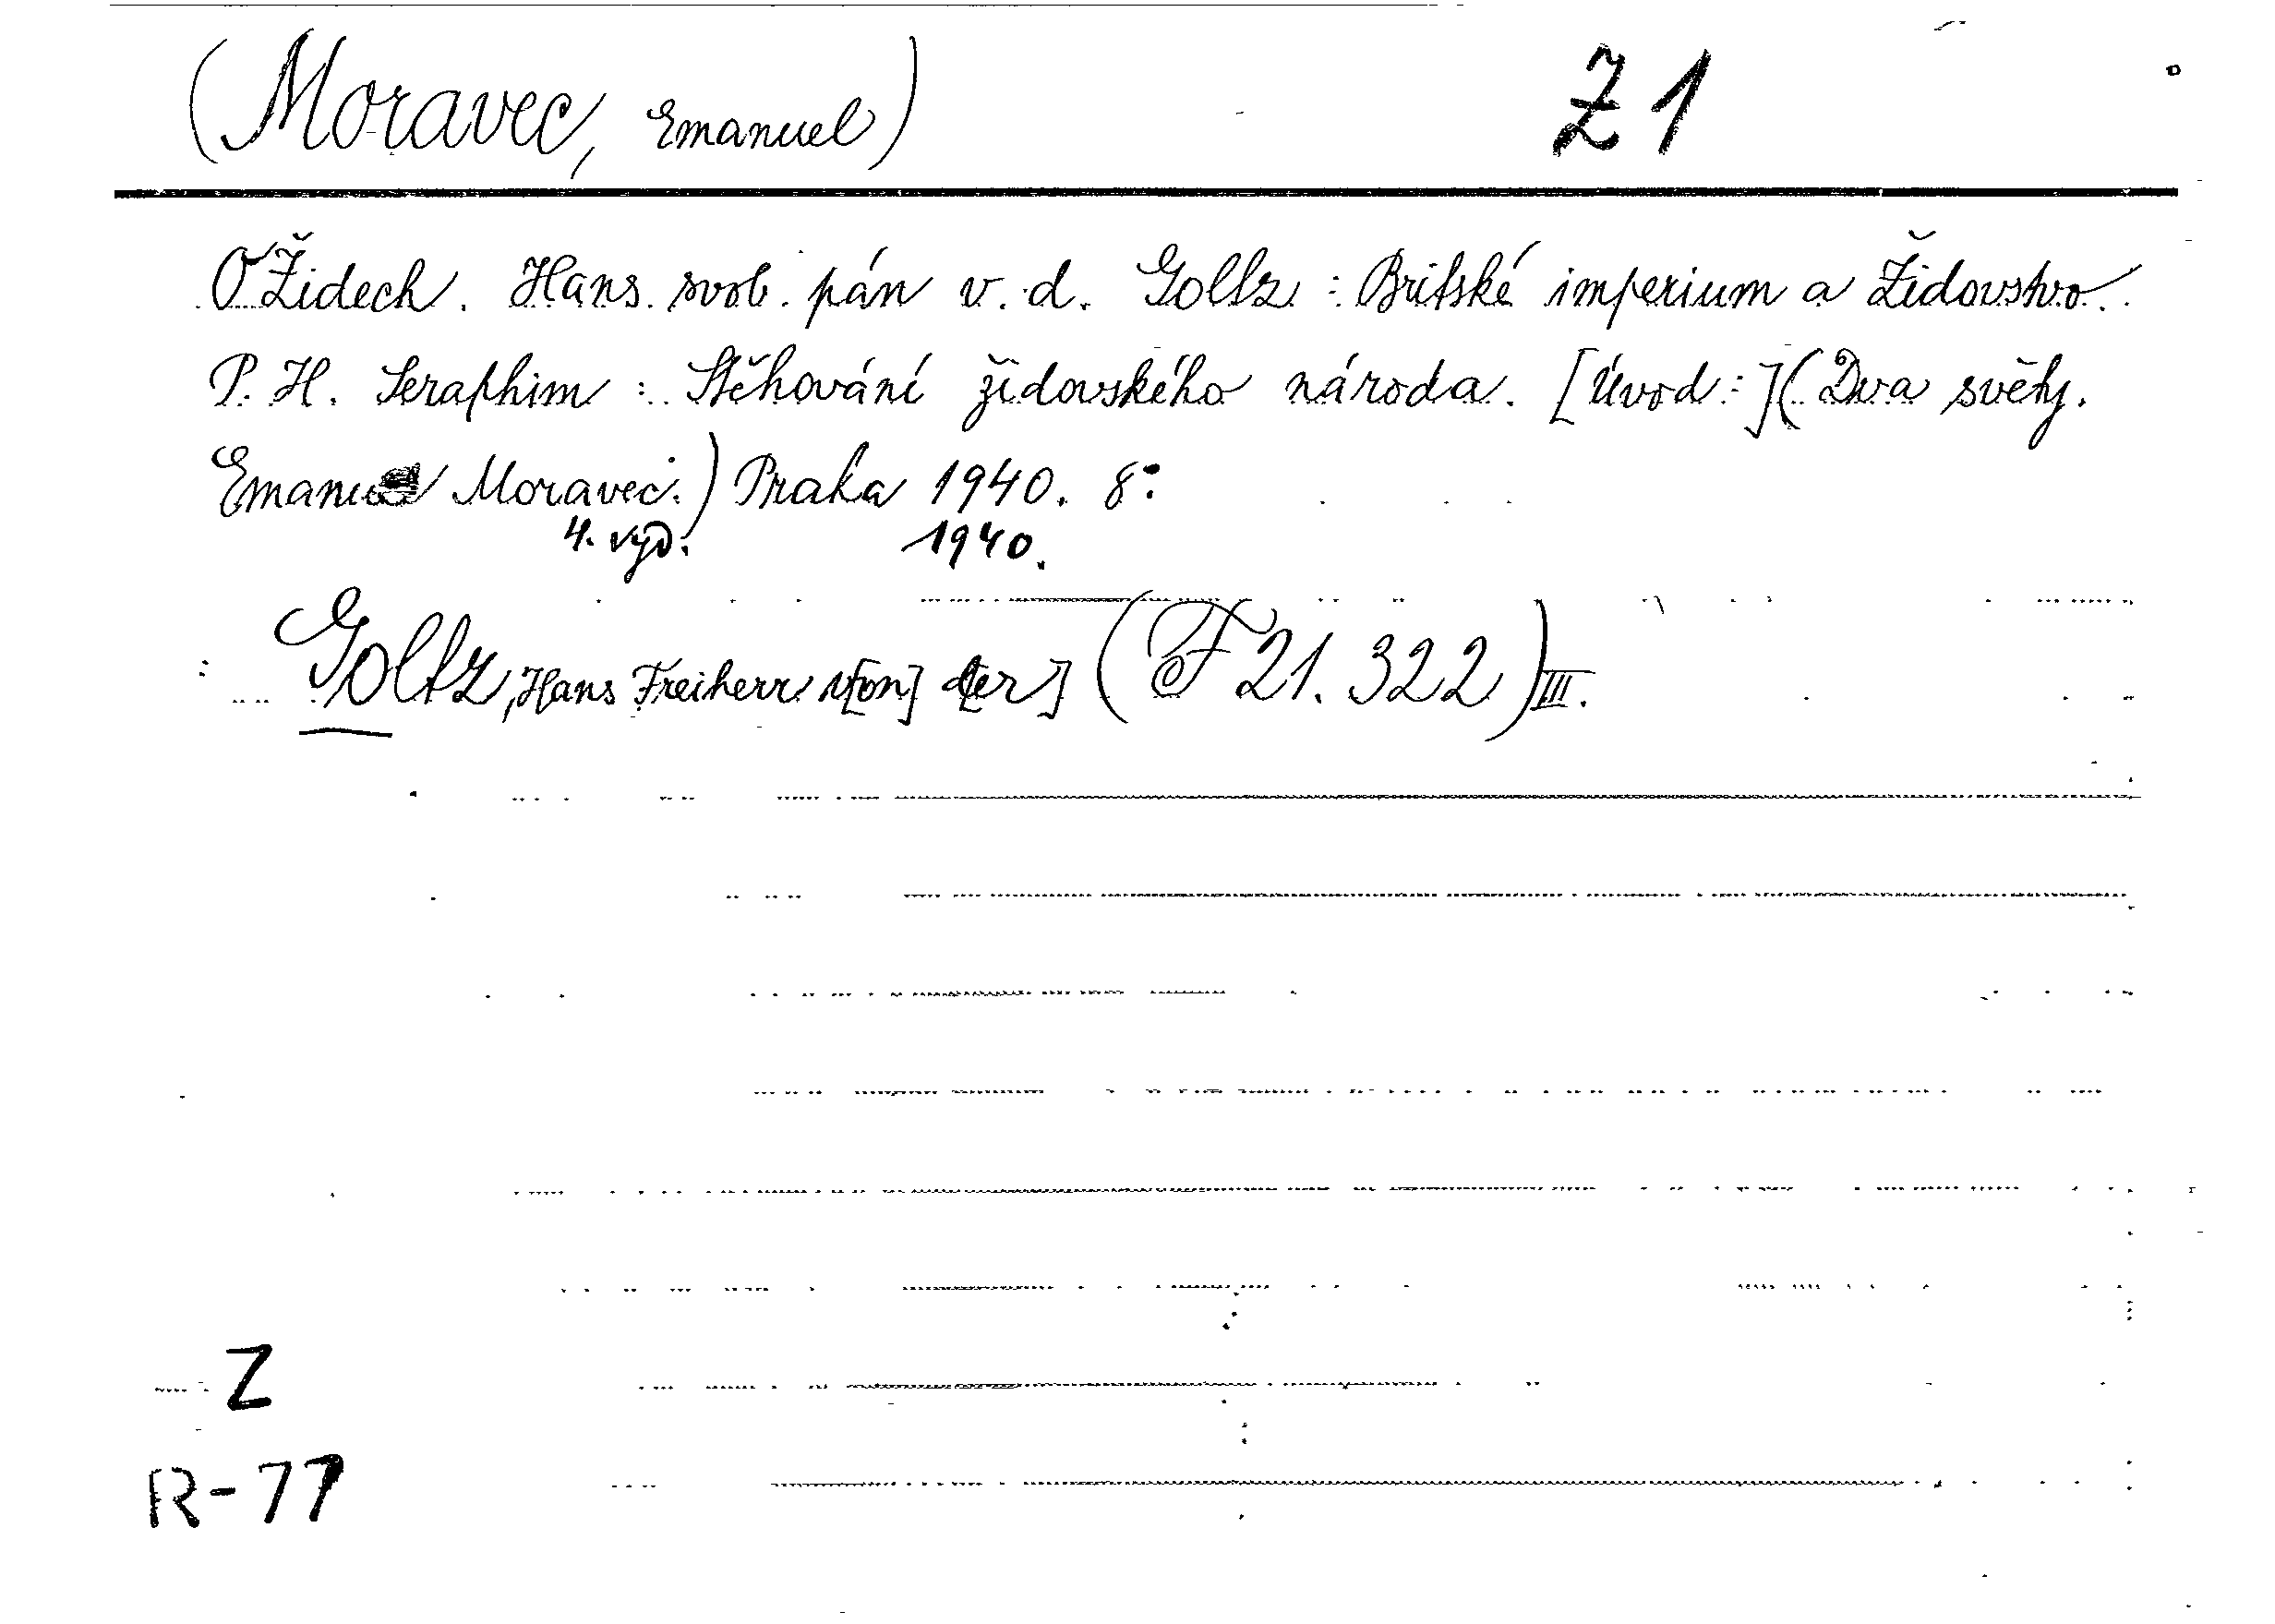 (Moravec, Emanuel) Z 1
O Židech. Hans svob. pán v. d. Goltz : Britské imperium a Židovstvo.
P. H. Seraphim : Stěhování židovského národa. [Úvod:] (Dva světy.
Emanuel Moravec.) Praha 1940. 8°.
4. vyd. 1940.
Goltz, Hans Freiherr v[on] d[er] (F 21.322) III.
Z
R-77